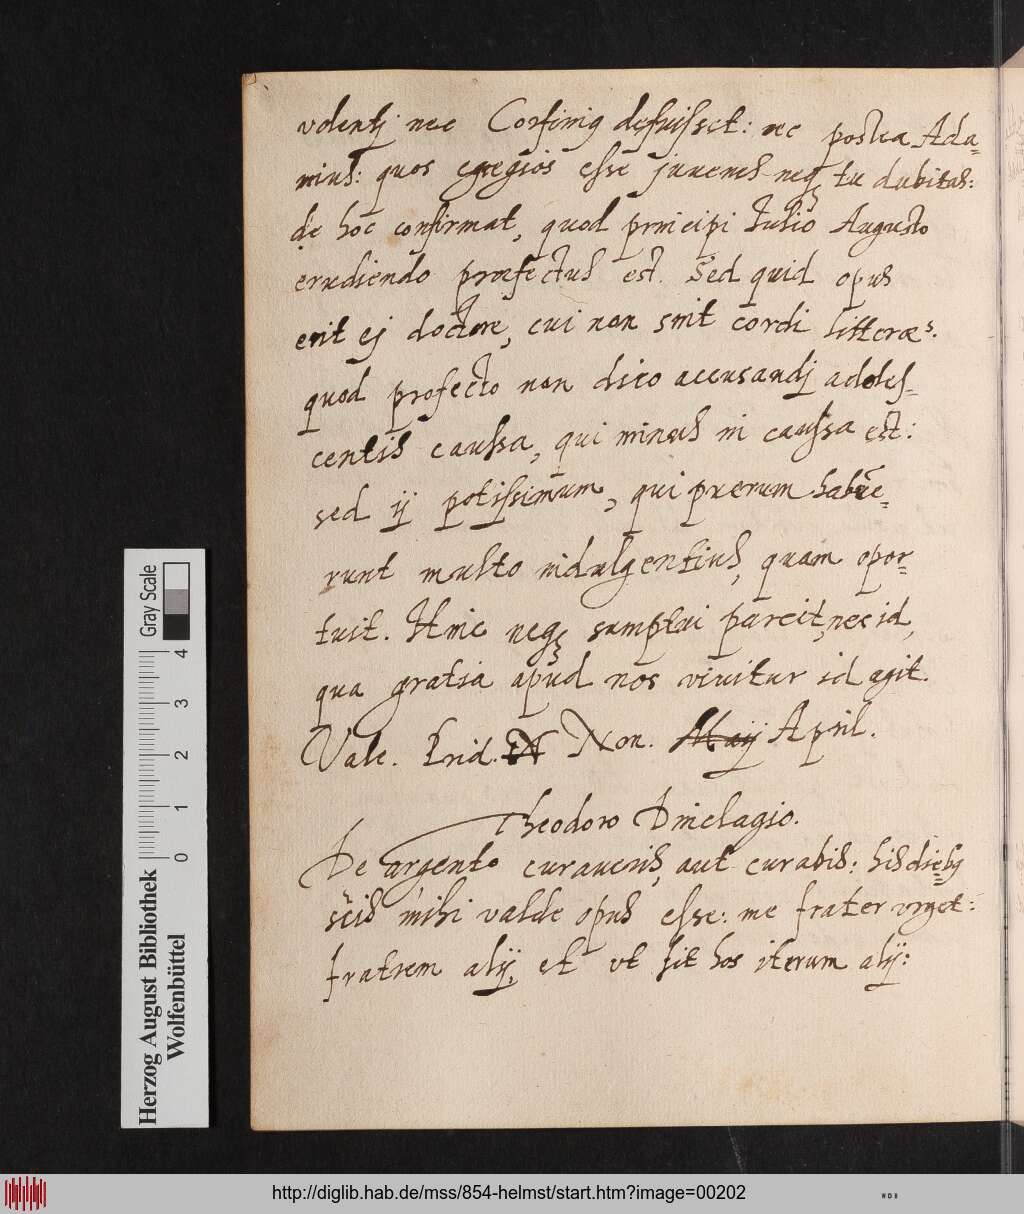 volentj nec Corfinig defuisset: nec postea Ada=
mius: quos egregios esse juvenes neq tu dubitas:
de hoc confirmat, quod principi Iulio Augusto
erudiendo præfectus est. Sed quid opus
erit ej doctore, cui non sint cordi litteræ?
quod profecto non dico accusandj adoles=
centis caussa, qui minus in caussa est:
sed ij potissimum, qui puerum habue=
runt multo indulgentius, quam opor=
tuit. Hinc neq sumptui parcit, nec id,
qua gratia apud nos vivitur id agit.
Vale. Prid. Non. Maij April.
Theodoro Dinclagio.
De argento curaveris, aut curabis: his dieb9
scis mihi valde opus esse: me frater vrget:
fratrem alij, et vt fit hos iterum alij:
Gray Scale
4
3
2
1
0
Herzog August Bibliothek
Wolfenbüttel
http://diglib.hab.de/mss/854-helmst/start.htm?image=00202